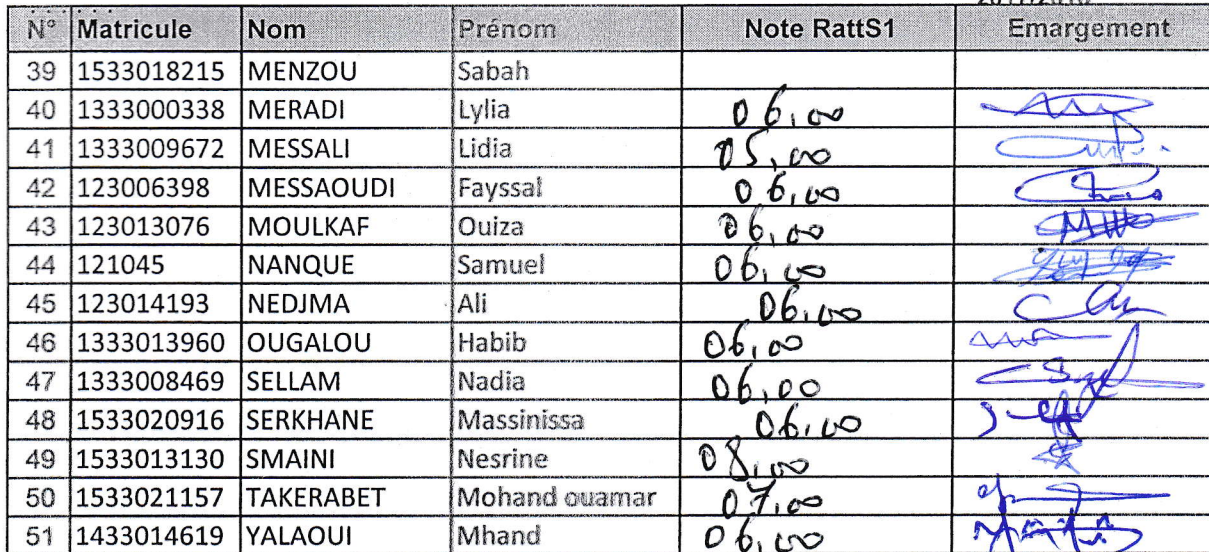 N° Matricule Nom Prénom Note RattS1 Emargement
39 1533018215 MENZOU Sabah
40 1333000338 MERADI Lylia 06,00
41 1333009672 MESSALI Lidia 05,00
42 123006398 MESSAOUDI Fayssal 06,00
43 123013076 MOULKAF Ouiza 06,00
44 121045 NANQUE Samuel 06,00
45 123014193 NEDJMA Ali 06,00
46 1333013960 OUGALOU Habib 06,00
47 1333008469 SELLAM Nadia 06,00
48 1533020916 SERKHANE Massinissa 06,00
49 1533013130 SMAINI Nesrine 08,00
50 1533021157 TAKERABET Mohand ouamar 07,00
51 1433014619 YALAOUI Mhand 06,00